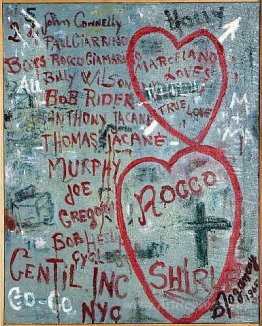 John Connelly
PAUL GIARRINO
Boys ROCCO GIAMARINO
Billy WILSON
BOB RIDER
ANTHONY IACANE
THOMAS IACANE
MURPHY
JOE
GREGORY
BOB HELL
CYCLES
GENTIL INC
GO-GO NYC
All
MARCELANO
LOVES
TRUE LOVE
M
+
M
ROCCO
+
SHIRL